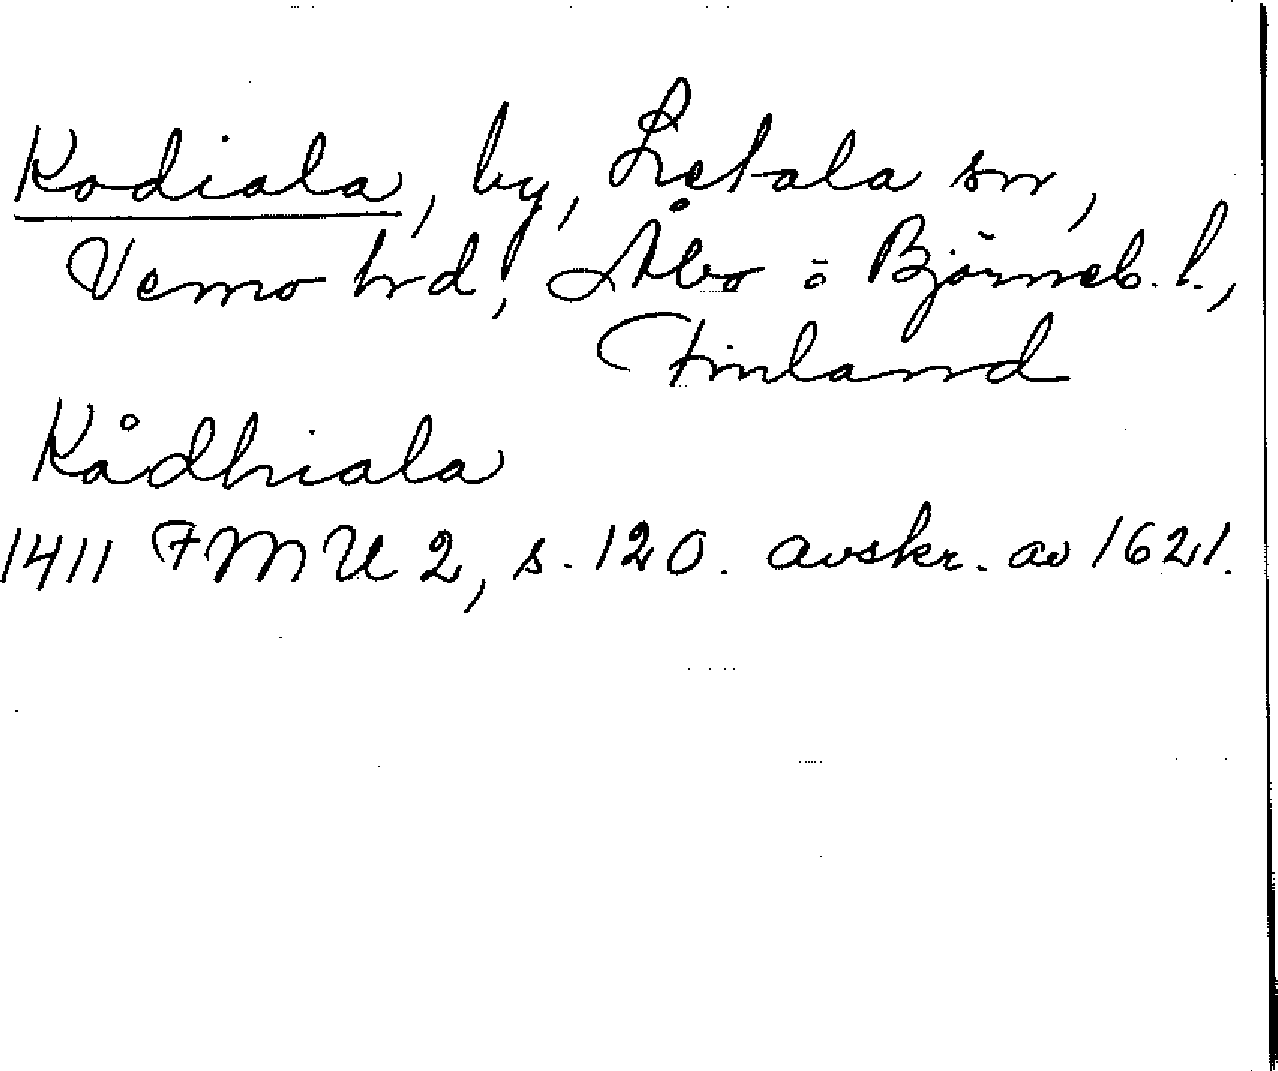 Kodiala, by, Letala sn,
Vemo hrd, Åbo o Björneb. l.,
Finland
Kådhiala
1411 FMU 2, s. 120. avskr. av 1621.